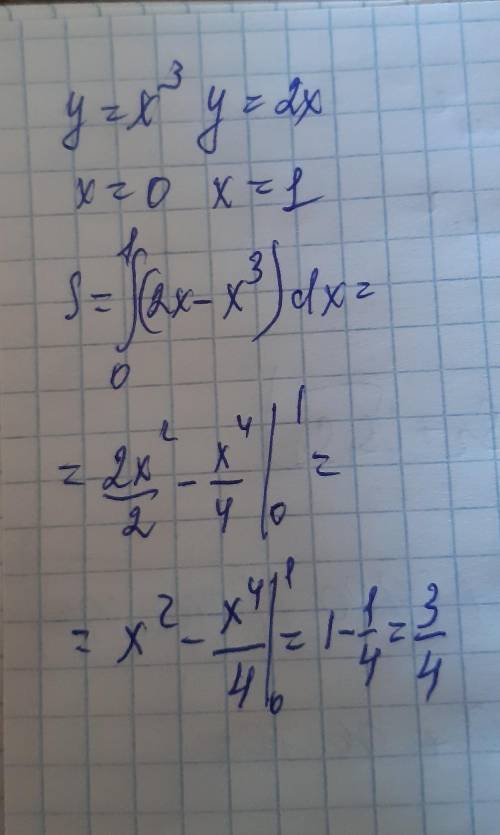 y = x³ y = 2x
x = 0 x = 1
S = ∫₀¹ (2x - x³) dx =
= 2x²/2 - x⁴/4 |₀¹ =
= x² - x⁴/4 |₀¹ = 1 - 1/4 = 3/4